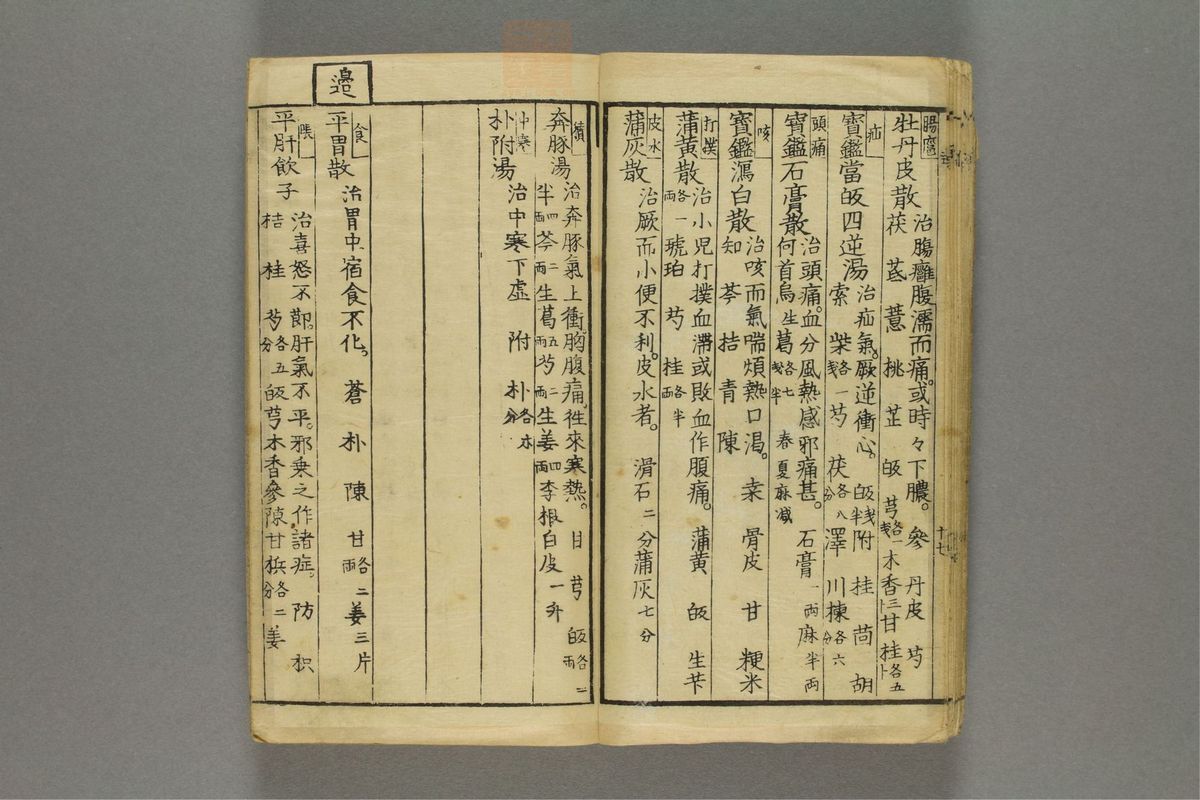 腸癰
牡丹皮散 治腸癰腹濡而痛。或時々下膿。 參 丹皮 芍
茯 苡 薏 桃 芷 皈 芎各一戔 木香三卜 甘 桂各五卜
疝
寶鑑當皈四逆湯 治疝氣。厥逆衝心。 皈戔半 附 桂 茴 胡
索 柴各一戔 芍 茯各八分 澤 川楝各六分
頭痛
寶鑑石膏散 治頭痛。血分風熱感邪痛甚。 石膏一兩 麻半兩
何首烏 生葛各七戔半 春夏麻減
咳
寶鑑瀉白散 治咳而氣喘煩熱口渴。 桒 骨皮 甘 粳米
知 芩 桔 青 陳
打撲
蒲黃散 治小児打撲血滯或敗血作腹痛。 蒲黃 皈 生芐
各一兩 琥珀 芍 桂各半兩
皮水
蒲灰散 治厥而小便不利。皮水者。 滑石二分 蒲灰七分
十七
奔豚湯 治奔豚氣上衝。胸腹痛。徃來寒熱。 甘 芎 皈各二兩
半四兩 芩二兩 生葛五兩 芍二兩 生姜四兩 李根白皮一升
中寒
朴附湯 治中寒下虛 附 朴
邉
食
平胃散 治胃中宿食不化。 蒼 朴 陳 甘各二兩 姜三片
平肝飲子 治喜怒不節。肝氣不平。邪乗之作諸症。 防 枳
桔 桂 芍各五分 皈 芎 木香 參 陳 甘 梹各二分 姜